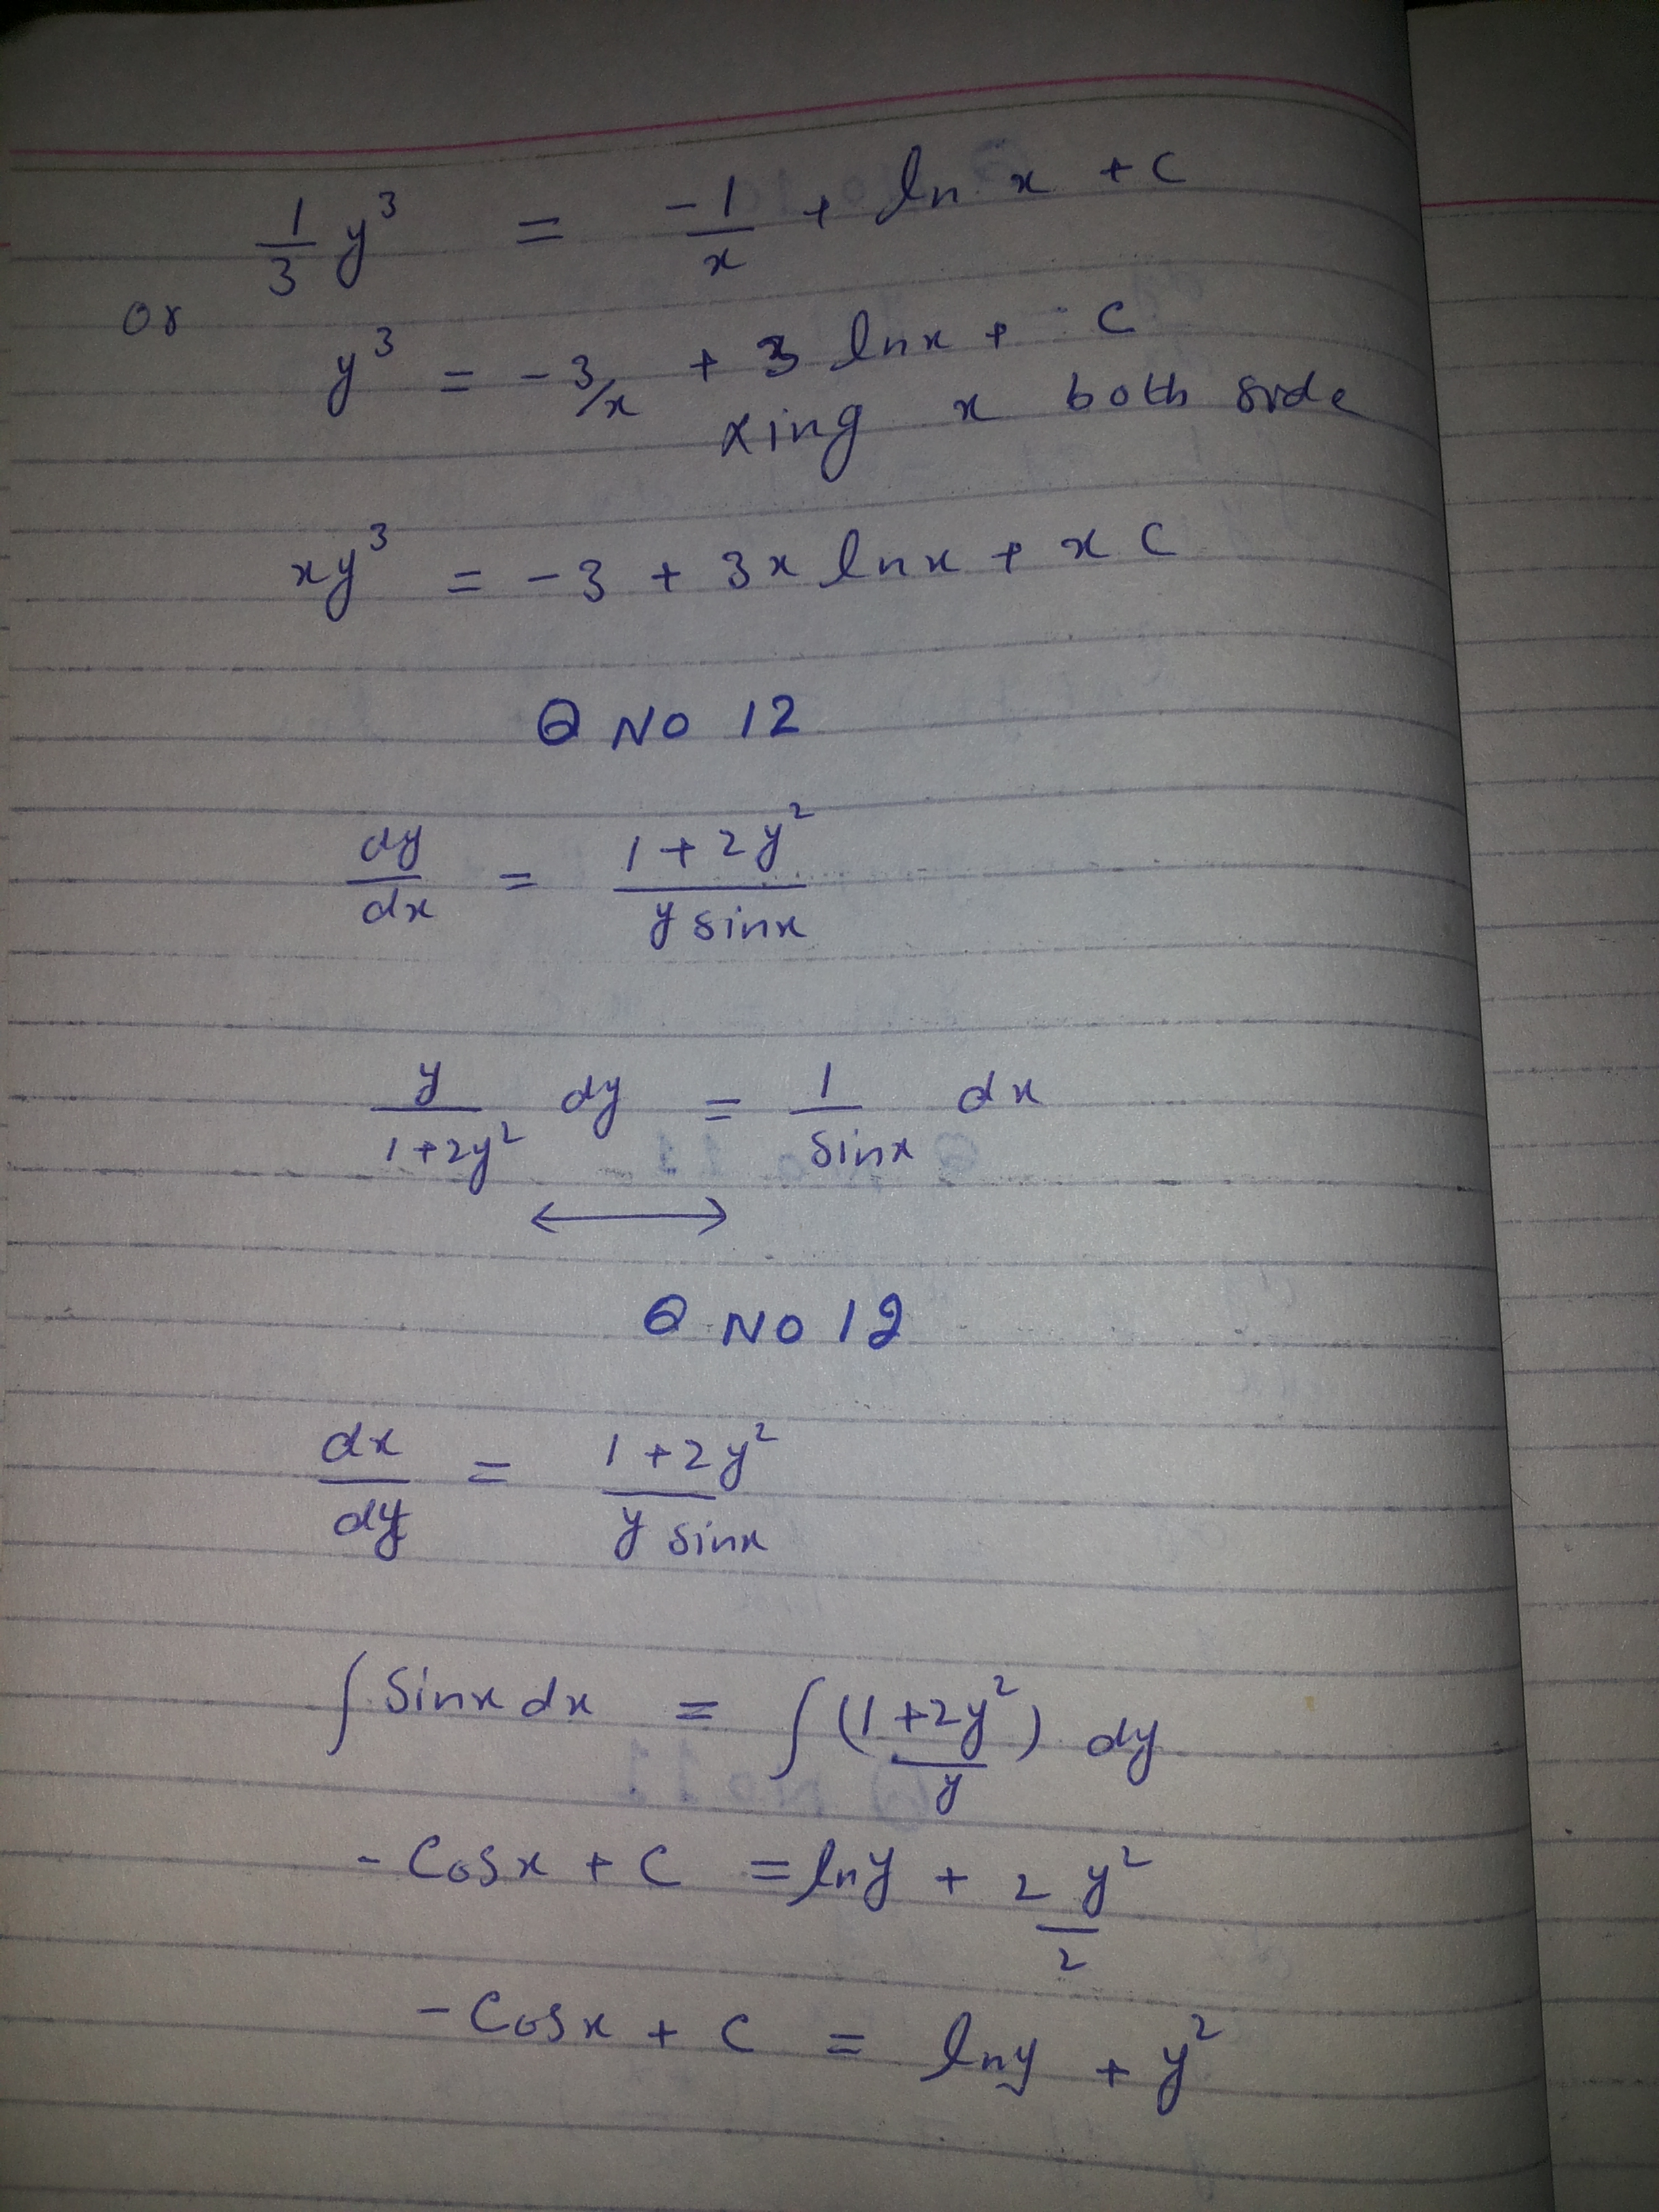 1/3 y³ = -1/x + ln x + c
or
y³ = -3/x + 3 lnx + c
xing x both side
xy³ = -3 + 3x lnx + x c
Q NO 12
dy/dx = 1+2y²/y sinx
y/1+2y² dy = 1/sinx dx
Q NO 12
dx/dy = 1+2y²/y sinx
∫ sinx dx = ∫ (1+2y²/y) dy
-cosx + c = lny + 2 y²/2
-cosx + c = lny + y²